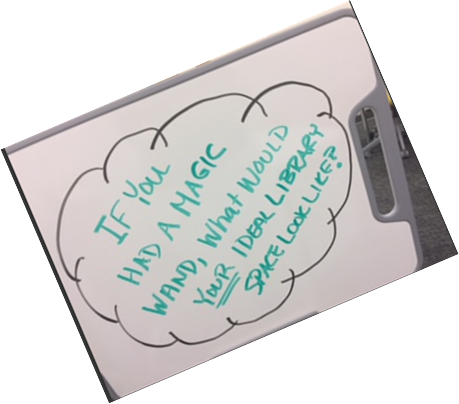 IF YOU
HAD A MAGIC
WAND, WHAT WOULD
YOUR IDEAL LIBRARY
SPACE LOOK LIKE?